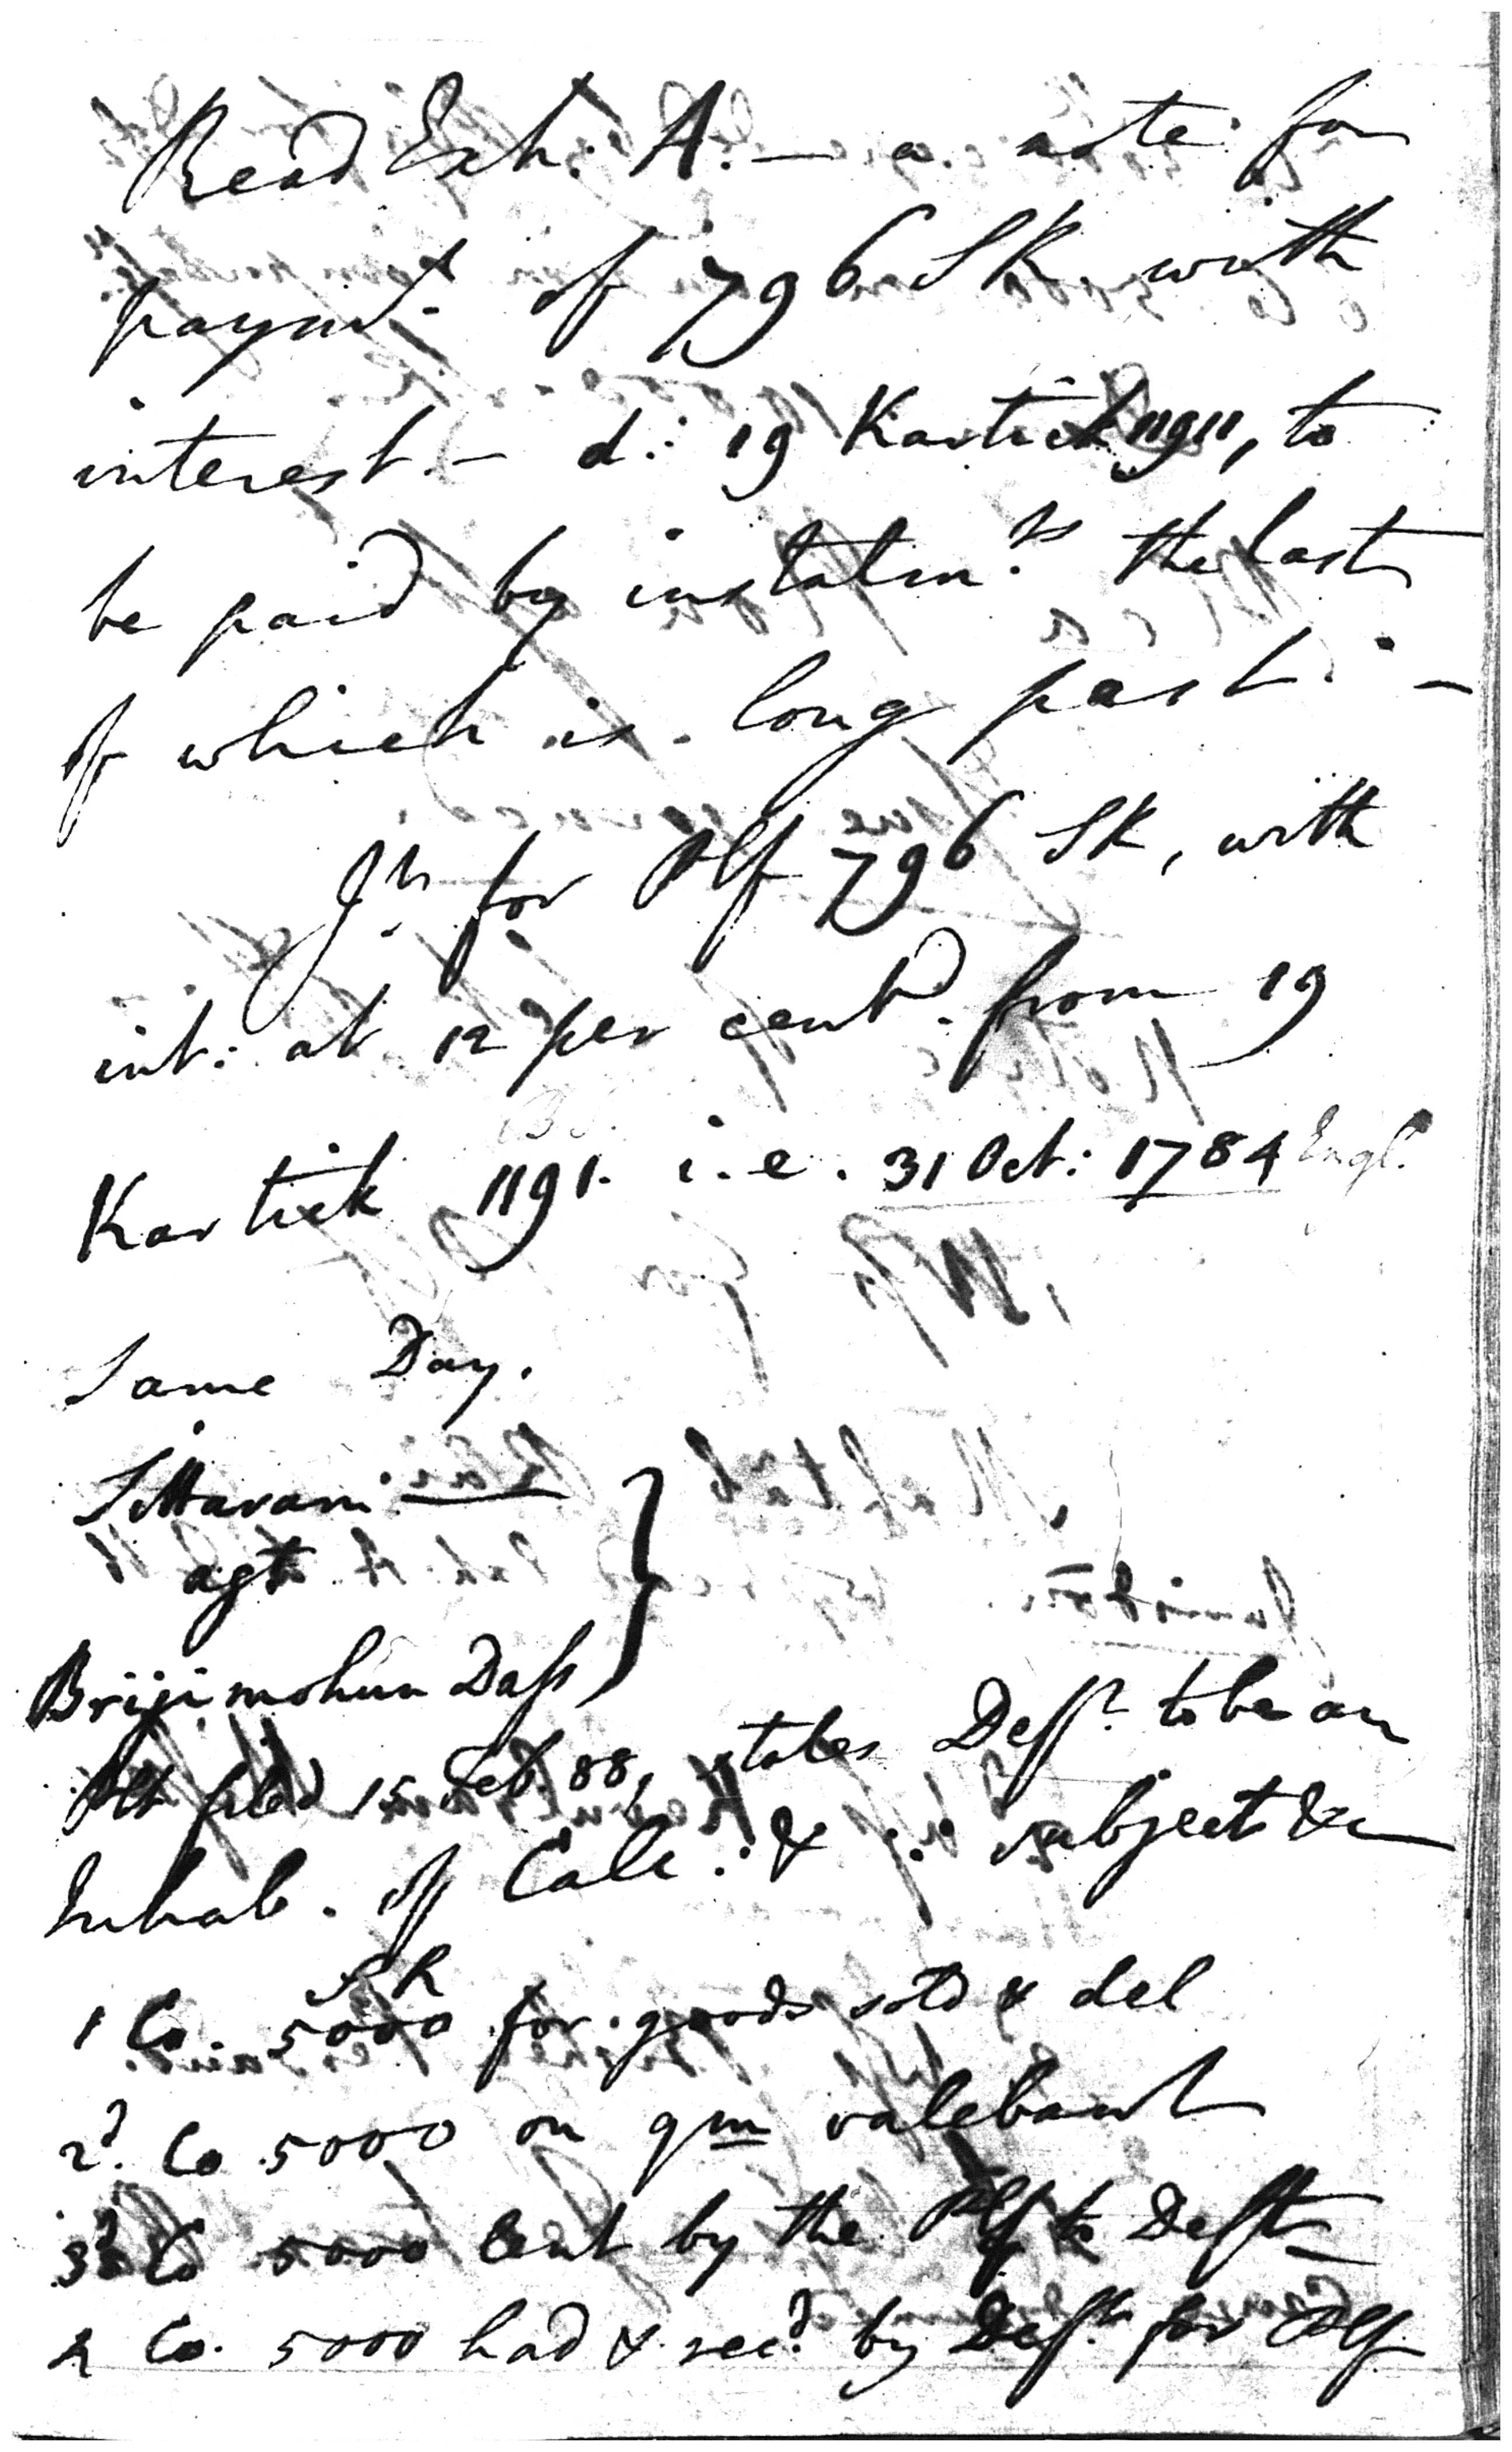 Read Exh: A. — a note for
paymt. of 796 SR. with
interest. — d: 19 Kartick 1191, to
be paid by instalmts. the last
of which is long past. —
Jt. for Plf 796 SR, with
int: at 12 per cent. from 19
Kartick 1191. i.e. 31 Oct: 1784 Engl.
Same Day.
Sittaram —
agt
Brijimohun Dass
Plt filed 15 Feb. 88, states Deft. to be an
Inhab. of Calc: & : subject &c
1 Co. 5000 SR for goods sold & del
2d. Co 5000 on qm valebant
3d Co 5000 lent by the Plf to Deft
4 Co. 5000 had & recd. by Deft. for Plf.